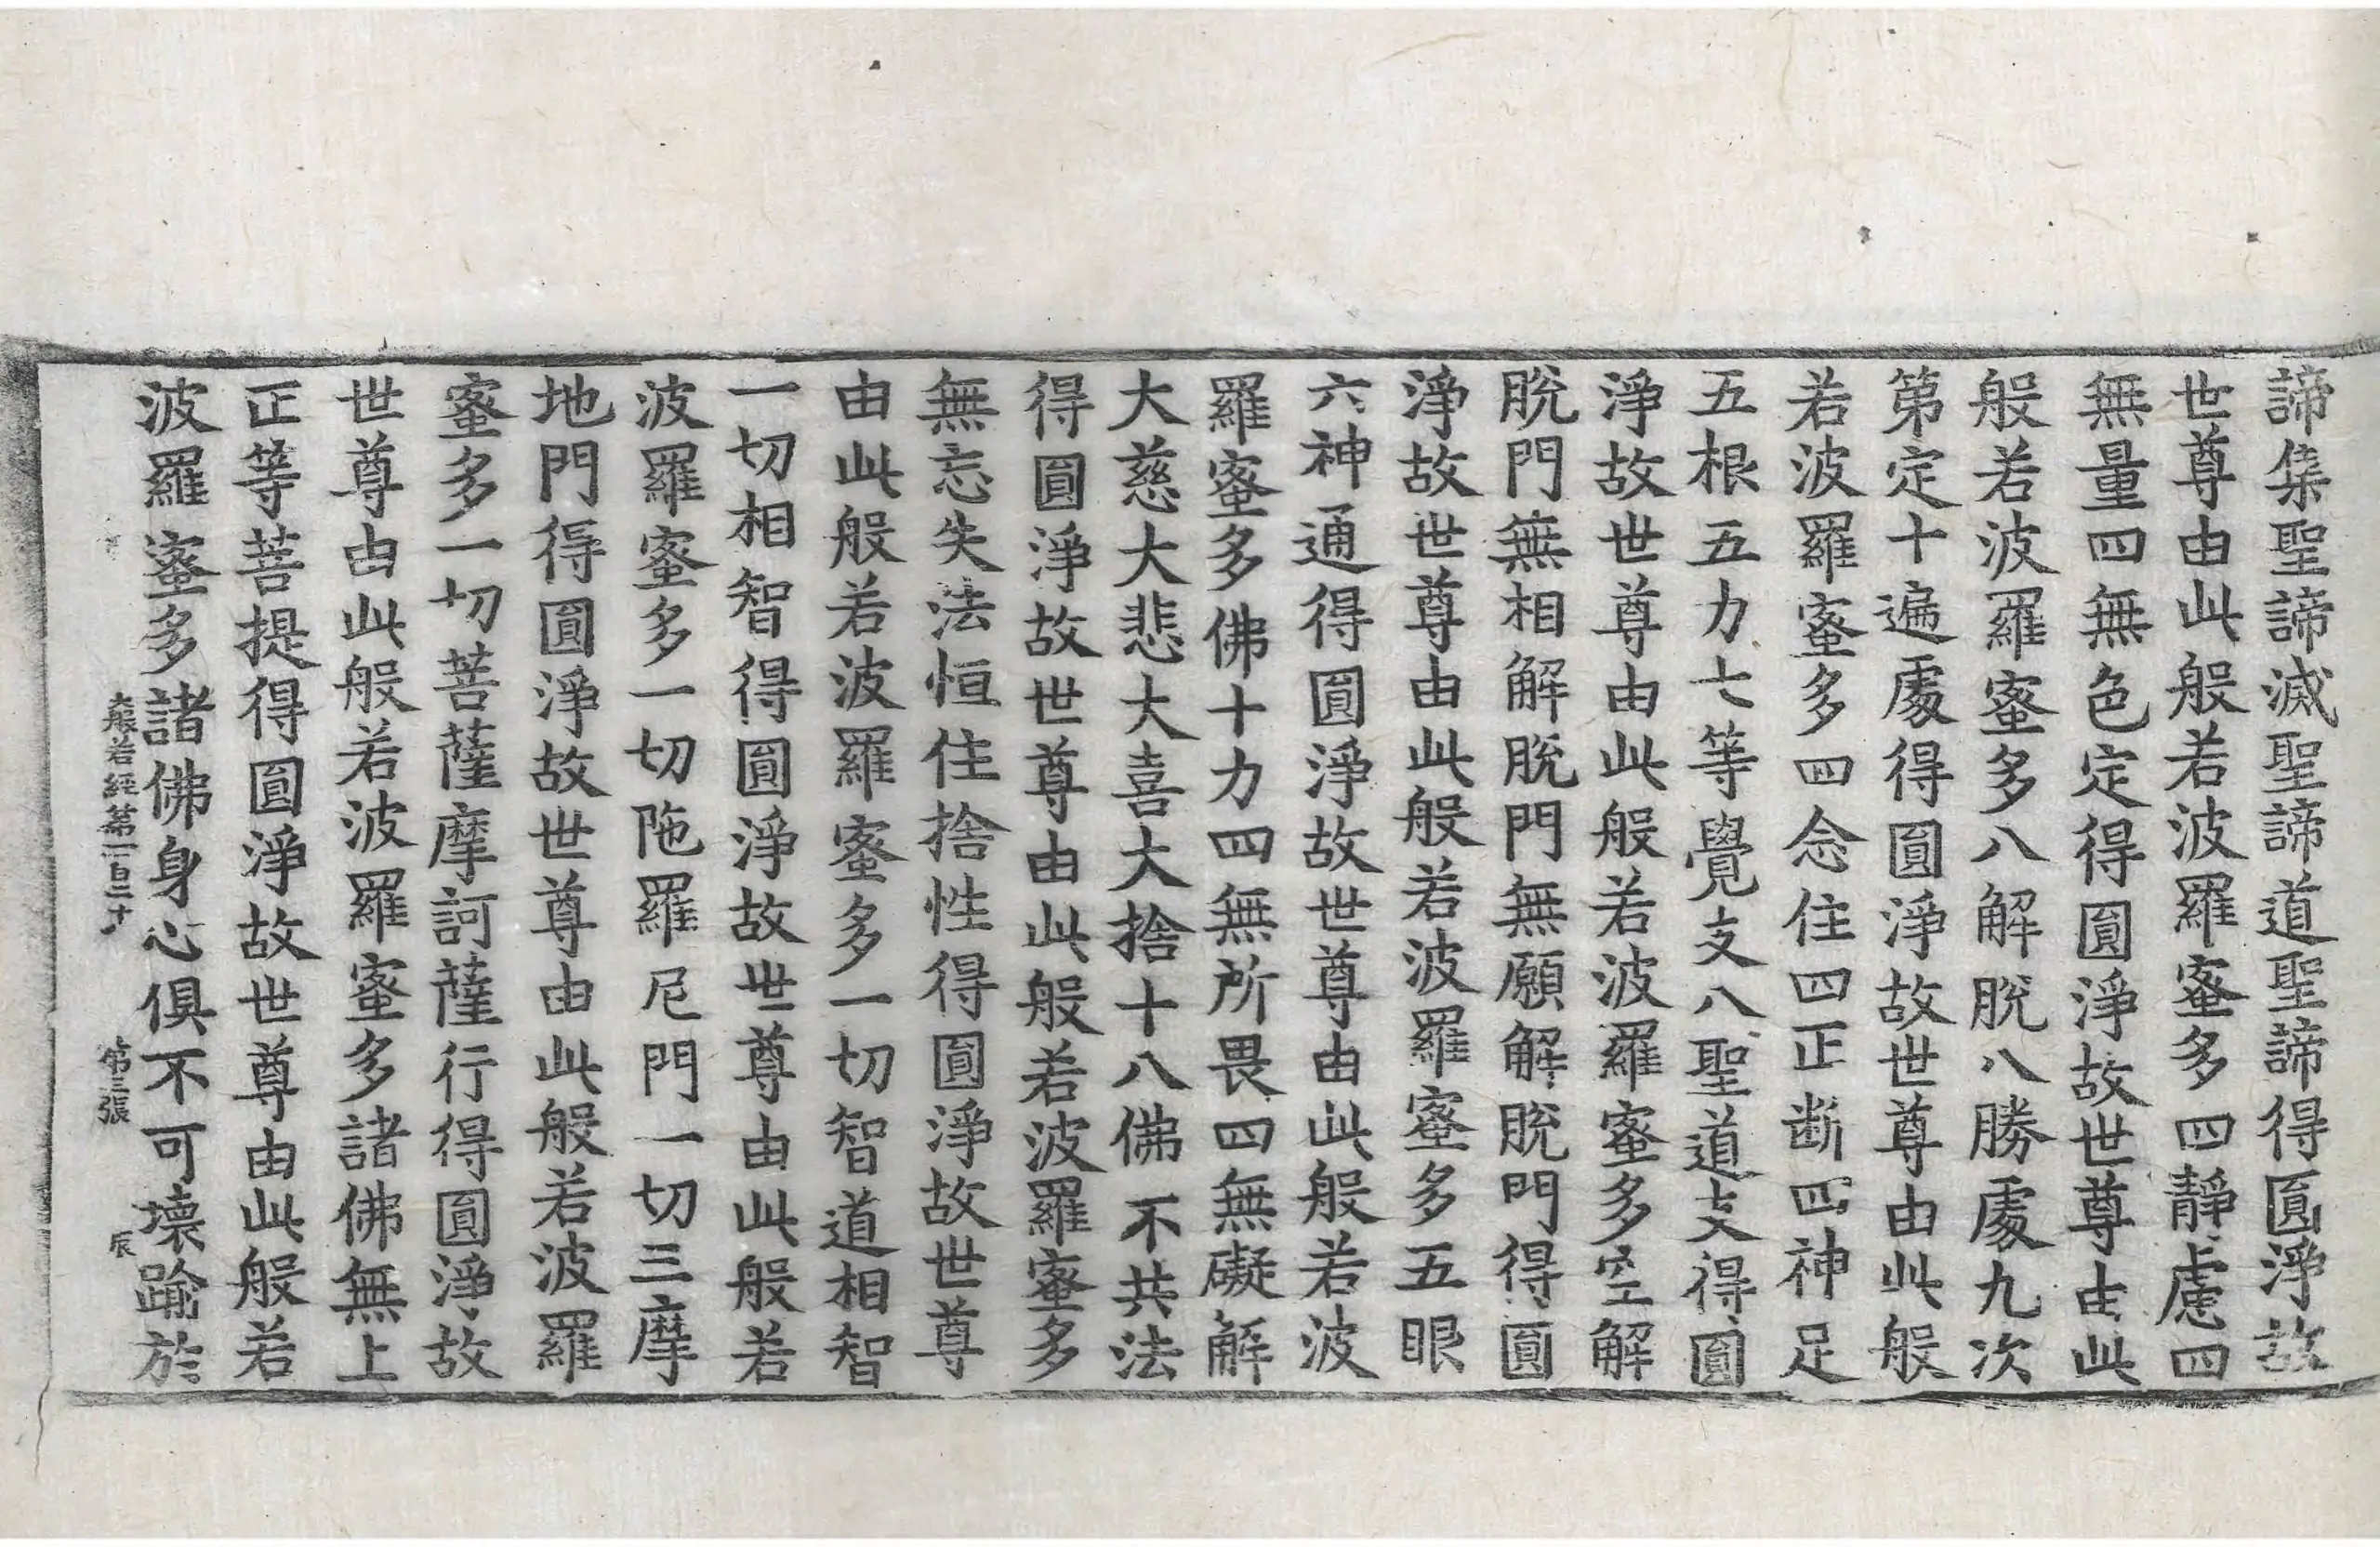 諦集聖諦滅聖諦道聖諦得圓淨故
世尊由此般若波羅蜜多四靜慮四
無量四無色定得圓淨故世尊由此
般若波羅蜜多八解脫八勝處九次
第定十遍處得圓淨故世尊由此般
若波羅蜜多四念住四正斷四神足
五根五力七等覺支八聖道支得圓
淨故世尊由此般若波羅蜜多空解
脫門無相解脫門無願解脫門得圓
淨故世尊由此般若波羅蜜多五眼
六神通得圓淨故世尊由此般若波
羅蜜多佛十力四無所畏四無礙解
大慈大悲大喜大捨十八佛不共法
得圓淨故世尊由此般若波羅蜜多
無忘失法恒住捨性得圓淨故世尊
由此般若波羅蜜多一切智道相智
一切相智得圓淨故世尊由此般若
波羅蜜多一切陁羅尼門一切三摩
地門得圓淨故世尊由此般若波羅
蜜多一切菩薩摩訶薩行得圓淨故
世尊由此般若波羅蜜多諸佛無上
正等菩提得圓淨故世尊由此般若
波羅蜜多諸佛身心俱不可壞踰於
大般若經第一百二十八 第三張 辰